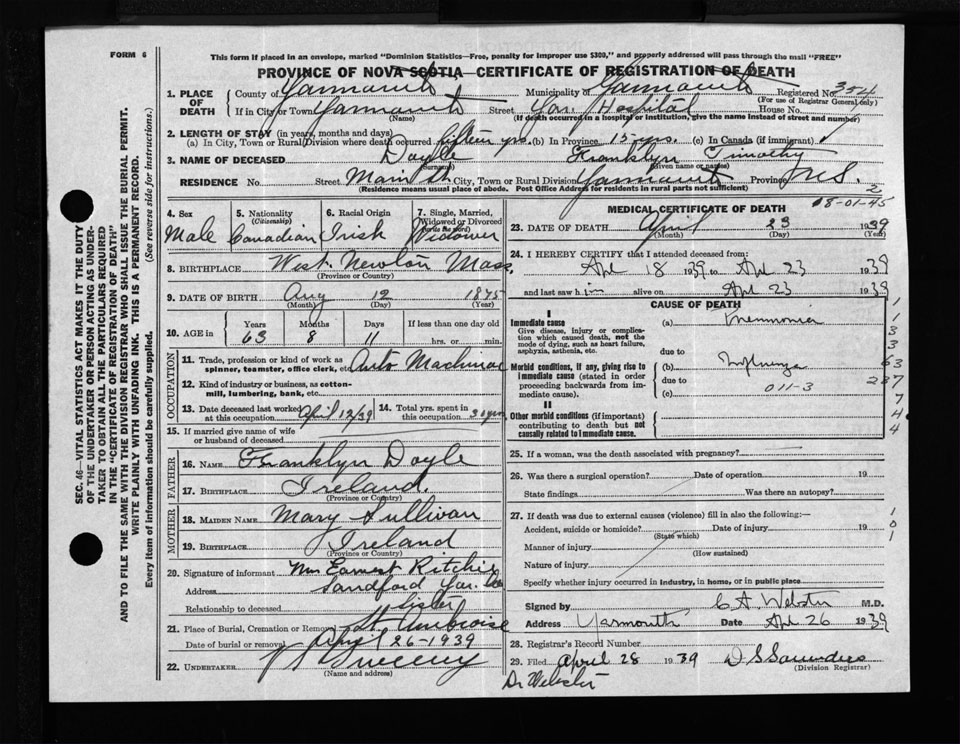 FORM 6
This form if placed in an envelope, marked "Dominion Statistics—Free, penalty for improper use $300," and properly addressed will pass through the mail "FREE"
PROVINCE OF NOVA SCOTIA—CERTIFICATE OF REGISTRATION OF DEATH
1. PLACE OF DEATH County of Yarmouth Municipality of Yarmouth Registered No. 354
(For use of Registrar General only)
If in City or Town Yarmouth Street Yar. Hospital House No.
(Name) (If death occurred in a hospital or institution, give name instead of street and number)
2. LENGTH OF STAY (in years, months and days)
(a) In City, Town or Rural Division where death occurred fifteen yrs. (b) In Province 15 yrs. (c) In Canada (if immigrant)
3. NAME OF DECEASED Doyle Franklyn Timothy
(Surname) Given name or names
RESIDENCE No. Street Main St. City, Town or Rural Division Yarmouth Province N.S.
(Residence means usual place of abode. Post Office Address for residents in rural parts not sufficient)
2
18-01-45
4. Sex Male
5. Nationality (Citizenship) Canadian
6. Racial Origin Irish
7. Single, Married, Widowed or Divorced (write the word) Widower
8. BIRTHPLACE West Newton Mass.
(Province or Country)
9. DATE OF BIRTH Aug 12 1875
(Month) (Day) (Year)
10. AGE in Years Months Days If less than one day old
63 8 11 hrs. or min.
OCCUPATION
11. Trade, profession or kind of work as spinner, teamster, office clerk, etc. Auto Machinac
12. Kind of industry or business, as cotton-mill, lumbering, bank, etc.
13. Date deceased last worked at this occupation April 12/39
14. Total yrs. spent in this occupation 20 years
15. If married give name of wife or husband of deceased
FATHER
16. NAME Franklyn Doyle
17. BIRTHPLACE Ireland.
(Province or Country)
MOTHER
18. MAIDEN NAME Mary Sullivan
19. BIRTHPLACE Ireland
(Province or Country)
20. Signature of informant Mrs Earnest Ritchie
Address Sandford Yar. Co
Relationship to deceased Sister
21. Place of Burial, Cremation or Removal St Ambroise
Date of burial or removal Apl 26-1939
22. UNDERTAKER Sweeney
(Name and address)
MEDICAL CERTIFICATE OF DEATH
23. DATE OF DEATH April 23 1939
(Month) (Day) (Year)
24. I HEREBY CERTIFY that I attended deceased from:
Apl 18 1939 to Apl 23 1939
and last saw him alive on Apl 23 1939
CAUSE OF DEATH
I
Immediate cause
Give disease, injury or complication which caused death, not the mode of dying, such as heart failure, asphyxia, asthenia, etc.
(a) Pneumonia
due to
Morbid conditions, if any, giving rise to immediate cause (stated in order proceeding backwards from immediate cause)
(b) Influenza
due to
(c) 011-3
II
Other morbid conditions (if important) contributing to death but not causally related to immediate cause.
1
1
3
3
63
237
7
4
4
25. If a woman, was the death associated with pregnancy?
26. Was there a surgical operation? Date of operation 19
State findings Was there an autopsy?
27. If death was due to external causes (violence) fill in also the following:—
Accident, suicide or homicide? Date of injury 19
(State which)
Manner of injury
(How sustained)
Nature of injury
Specify whether injury occurred in industry, in home, or in public place
1
0
1
Signed by C. A. Webster M.D.
Address Yarmouth Date Apl 26 1939
28. Registrar's Record Number
29. Filed April 28 1939 D S Saunders
(Division Registrar)
Dr Webster
SEC. 46—VITAL STATISTICS ACT MAKES IT THE DUTY
OF THE UNDERTAKER OR PERSON ACTING AS UNDER-
TAKER TO OBTAIN ALL THE PARTICULARS REQUIRED
IN THE "CERTIFICATE OF REGISTRATION OF DEATH"
AND TO FILE THE SAME WITH THE DIVISION REGISTRAR WHO SHALL ISSUE THE BURIAL PERMIT.
WRITE PLAINLY WITH UNFADING INK. THIS IS A PERMANENT RECORD.
Every item of information should be carefully supplied. (See reverse side for instructions.)